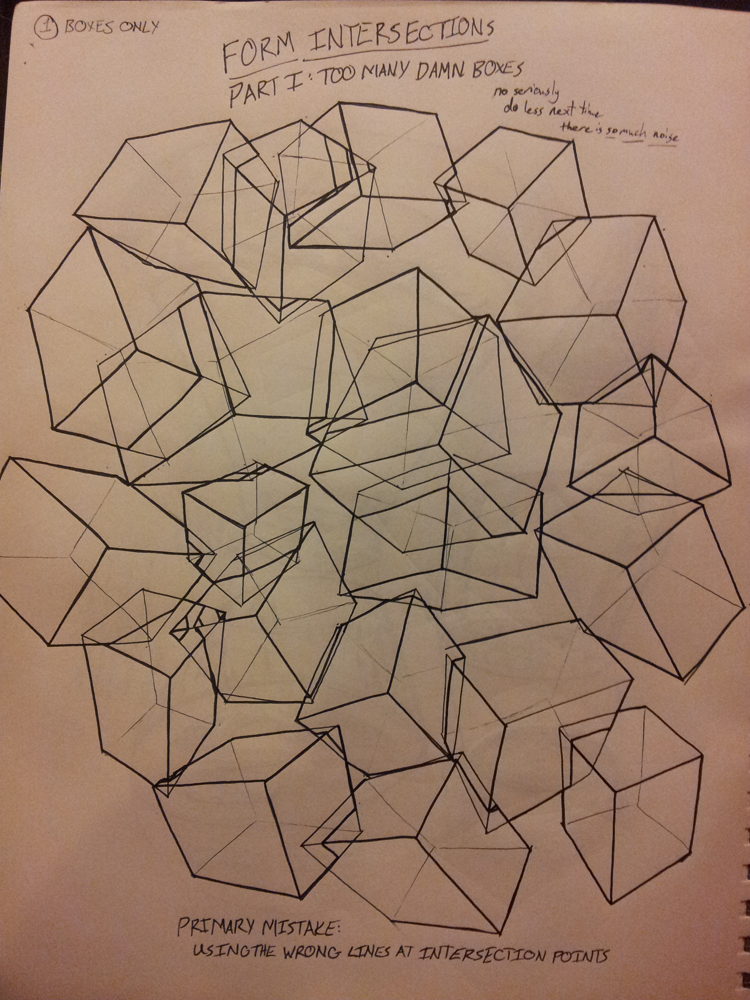 ① BOXES ONLY
FORM INTERSECTIONS
PART I: TOO MANY DAMN BOXES
no seriously
do less next time
there is so much noise
PRIMARY MISTAKE:
USING THE WRONG LINES AT INTERSECTION POINTS